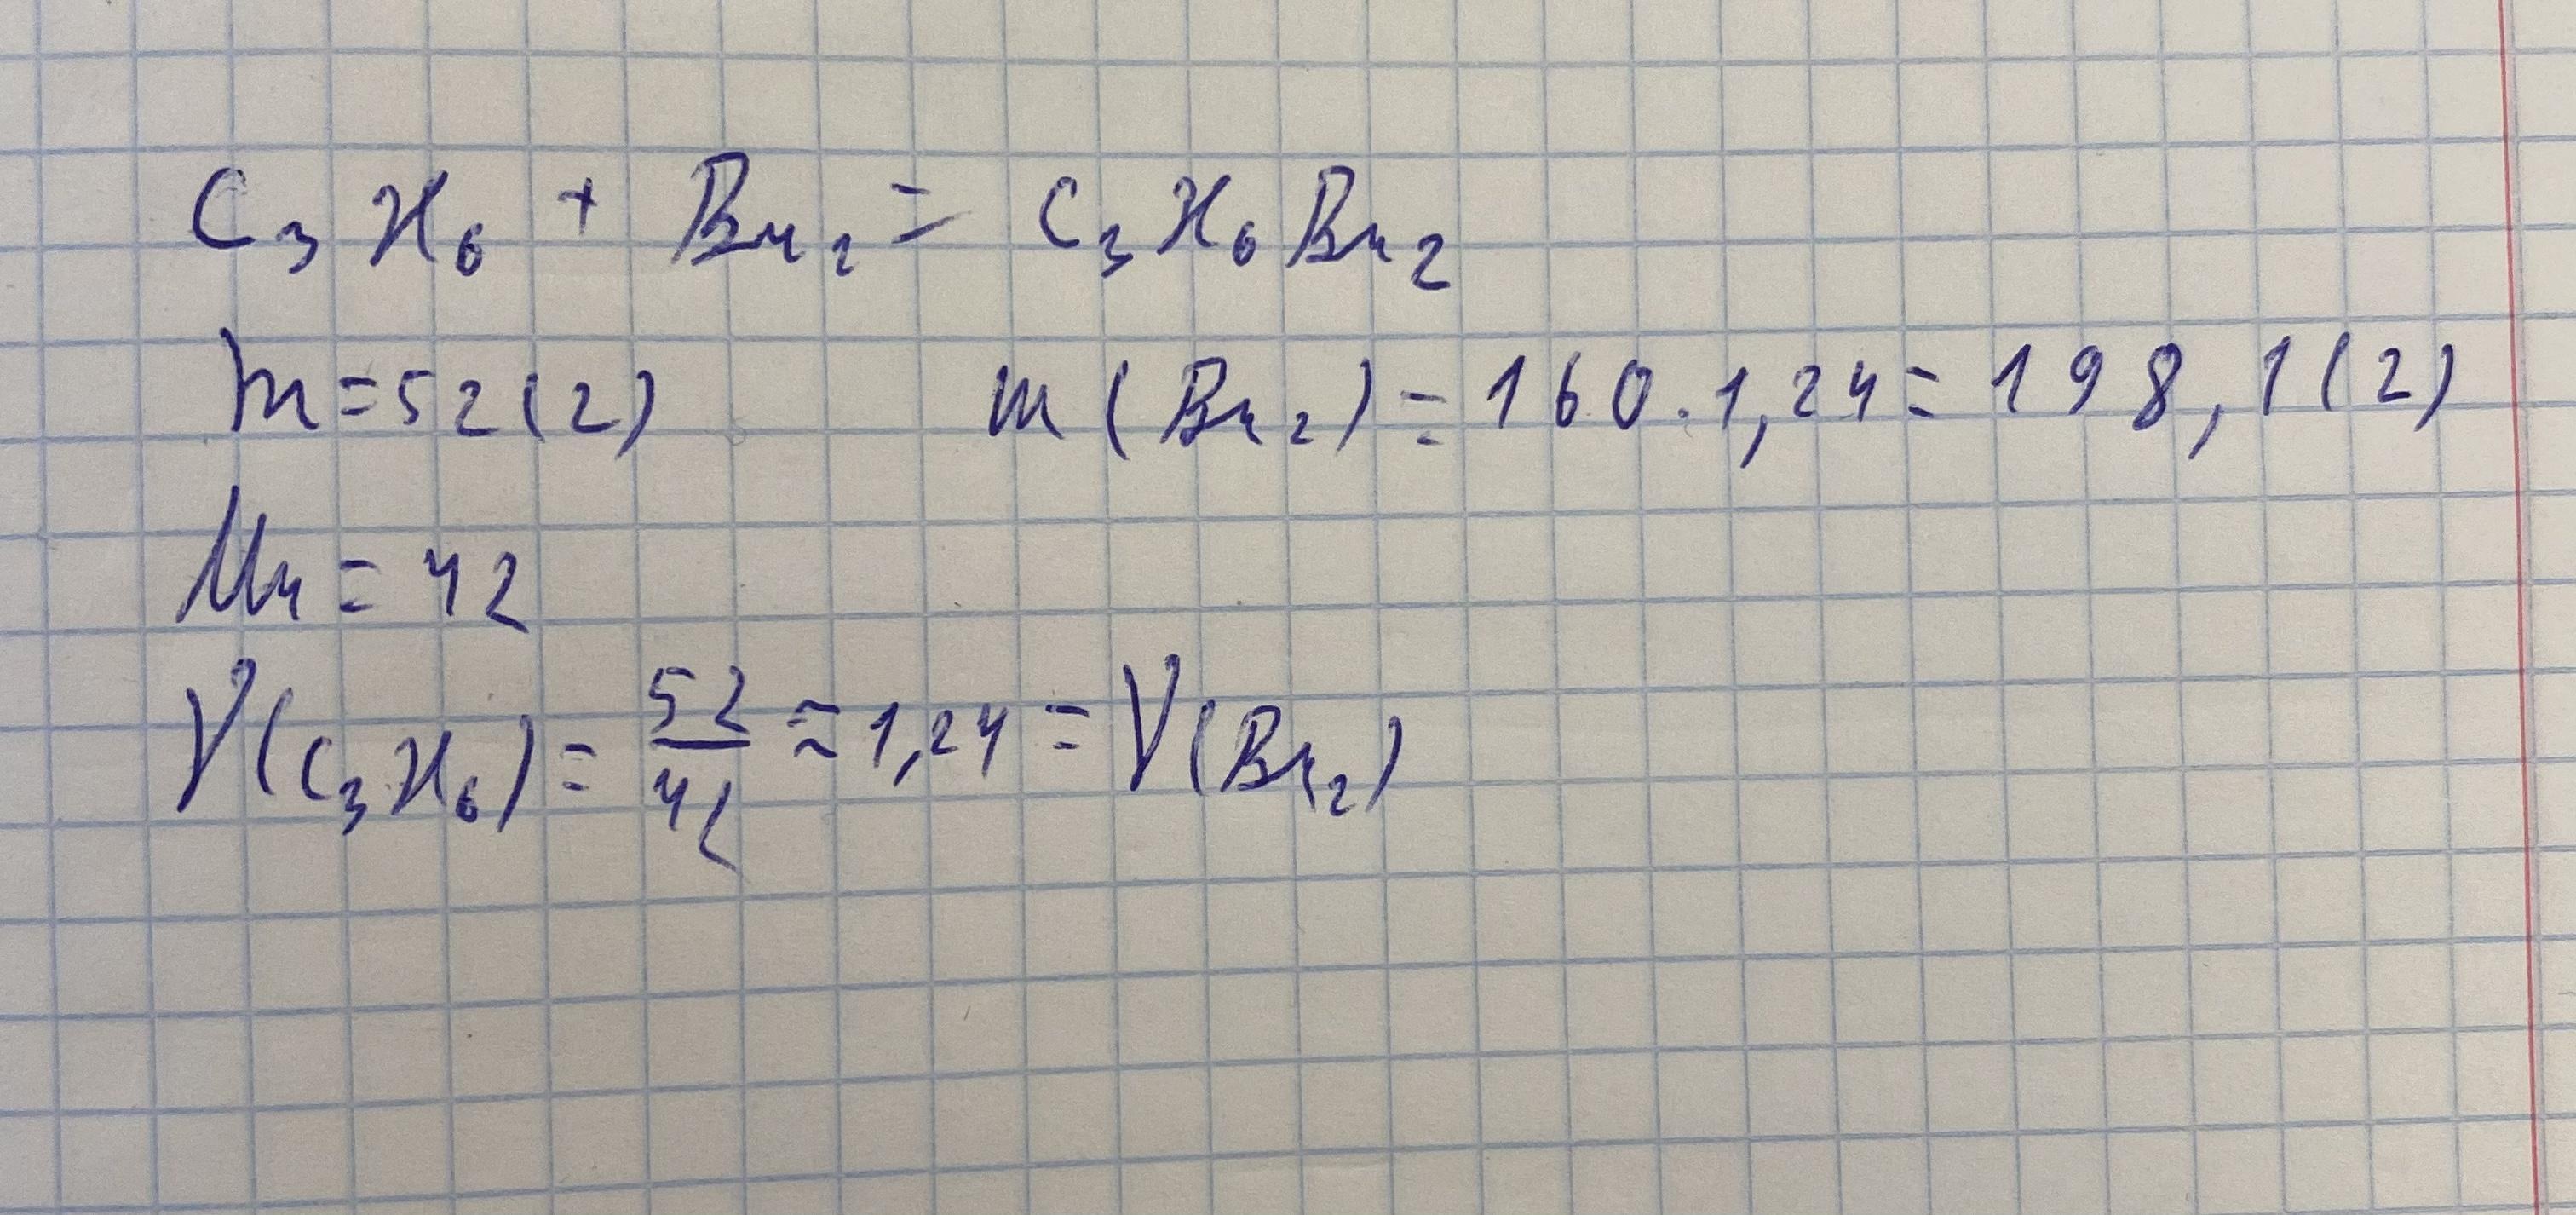 C₃H₆ + Br₂ = C₃H₆Br₂
m = 52 (г) m(Br₂) = 160 · 1,24 = 198,1 (г)
Mr = 42
ν(C₃H₆) = 52/42 ≈ 1,24 = ν(Br₂)